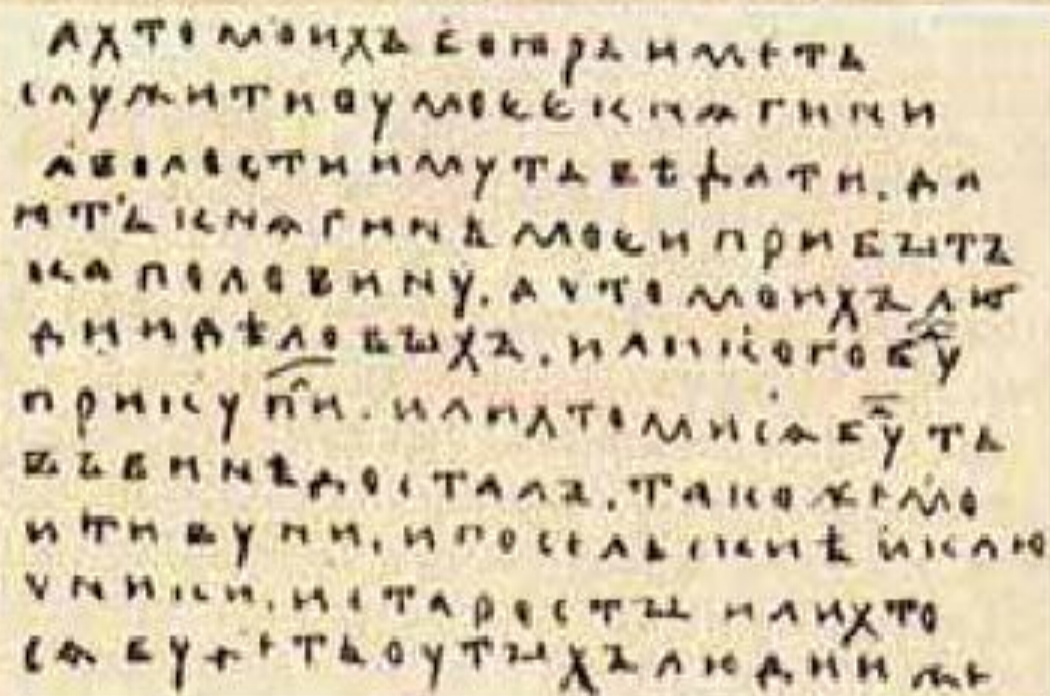 а хто моихъ боꙗръ иметь
служити оу моеє кнѧгини
а волости имуть вѣдати. да
ють кнѧгинѣ моєи прибытъ
ка половину. а что моихъ лю
дии дѣловыхъ. или кого бу
прикупи. или хто ми сѧ буть
въ винѣ досталъ. тако же мо
и тивуни. и посельскиѣ и клю
чники. и старосты или хто
сѧ будеть оу тыхъ людии же